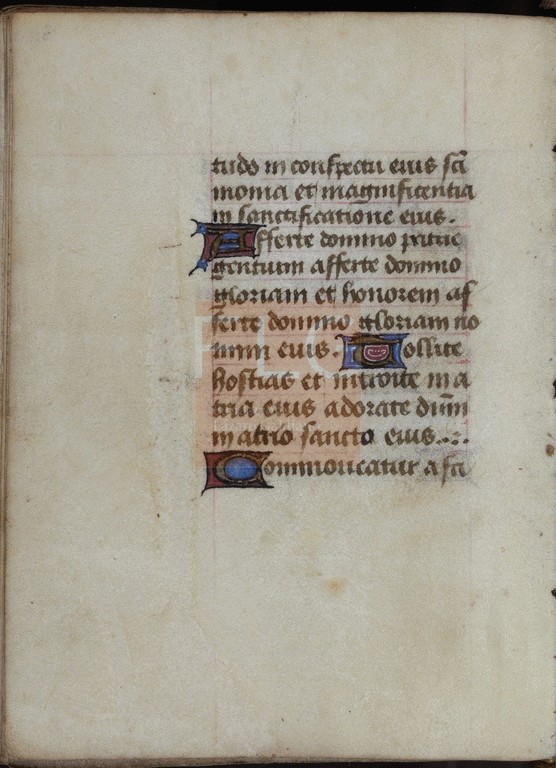 tudo in conspectu eius scī
monia et magnificentia
in sanctificatione eius.
Afferte domino patrie
gentium afferte domino
gloriam et honorem af
ferte domino gloriam no
mini eius. Tollite
hostias et introite in a
tria eius adorate dūm
in atrio sancto eius.
Commoueatur a fa